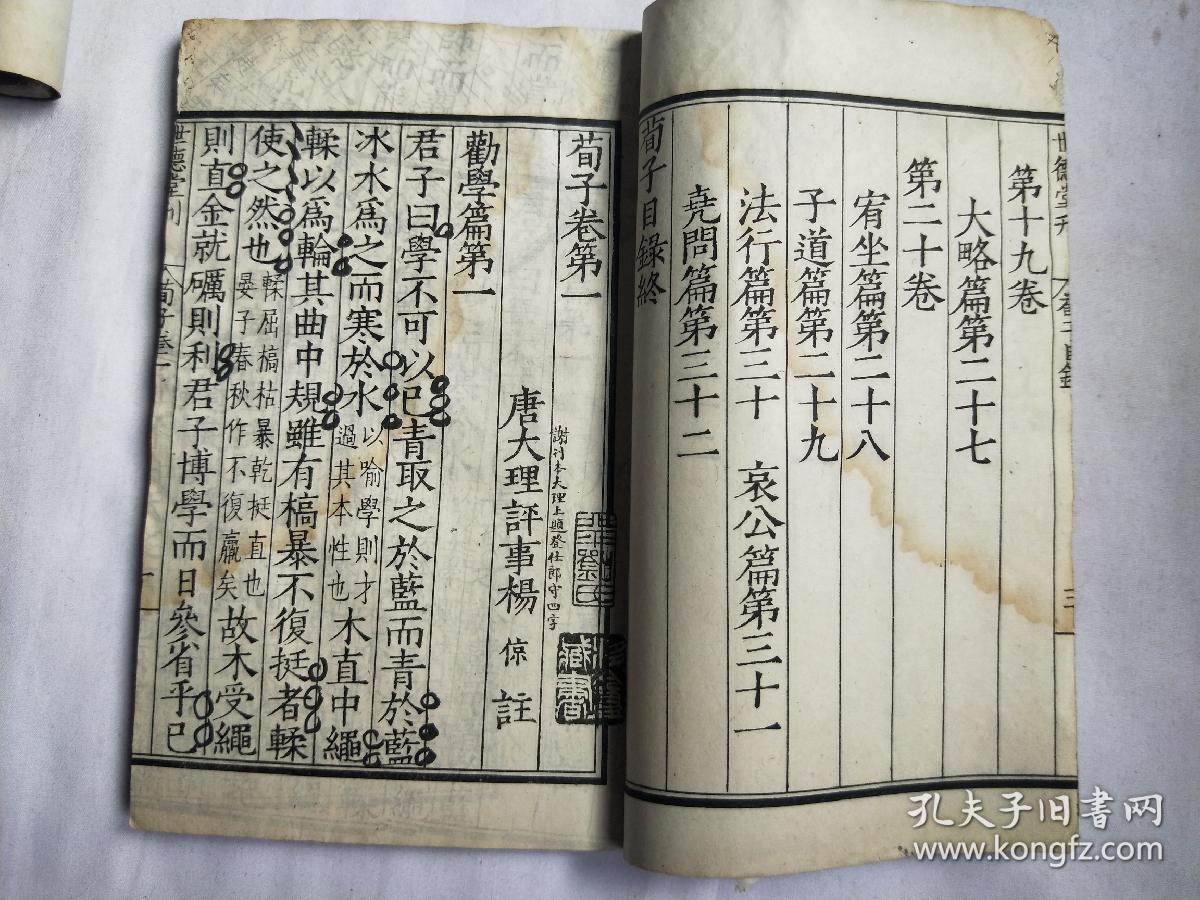 世德堂刊
第十九卷
大略篇第二十七
第二十卷
宥坐篇第二十八
子道篇第二十九
法行篇第三十　哀公篇第三十一
堯問篇第三十二
荀子目錄終
荀子卷第一
謝刊本大理上題登仕郎守四字
唐大理評事楊　倞　註
勸學篇第一
君子曰學不可以已青取之於藍而青於藍
冰水爲之而寒於水以喻學則才過其本性也木直中繩
輮以爲輪其曲中規雖有槁暴不復挺者輮
使之然也輮屈槁枯暴乾挺直也晏子春秋作不復羸矣故木受繩
則直金就礪則利君子博學而日參省乎已
世德堂刊
荀子卷一
一
藏書
孔夫子旧书网
www.kongfz.com